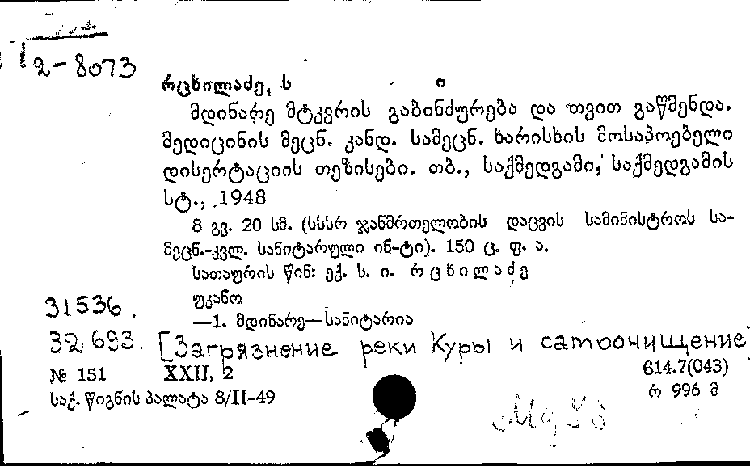 2-8073
რცხილაძე, ს ი
მდინარე მტკვრის გაბინძურება და თვით გაწმენდა.
მედიცინის მეცნ. კანდ. სამეცნ. ხარისხის მოსაპოებელი
დისერტაციის თეზისები. თბ., საქმედგამი, საქმედგამის
სტ., 1948
8 გვ. 20 სმ. (სსსრ ჯანმრთელობის დაცვის სამინისტროს სა-
მეცნ.-კვლ. სანიტარული ინ-ტი). 150 ც. ფ. ა.
სათაურის წინ: ექ. ს. ი. რცხილაძე
უკანო
—1. მდინარე—სანიტარია
31536.
32693. [Загрязнение реки Куры и самоочищение
№ 151 XXII, 2 614.7(043)
საქ. წიგნის პალატა 8/II-49 რ 996 მ